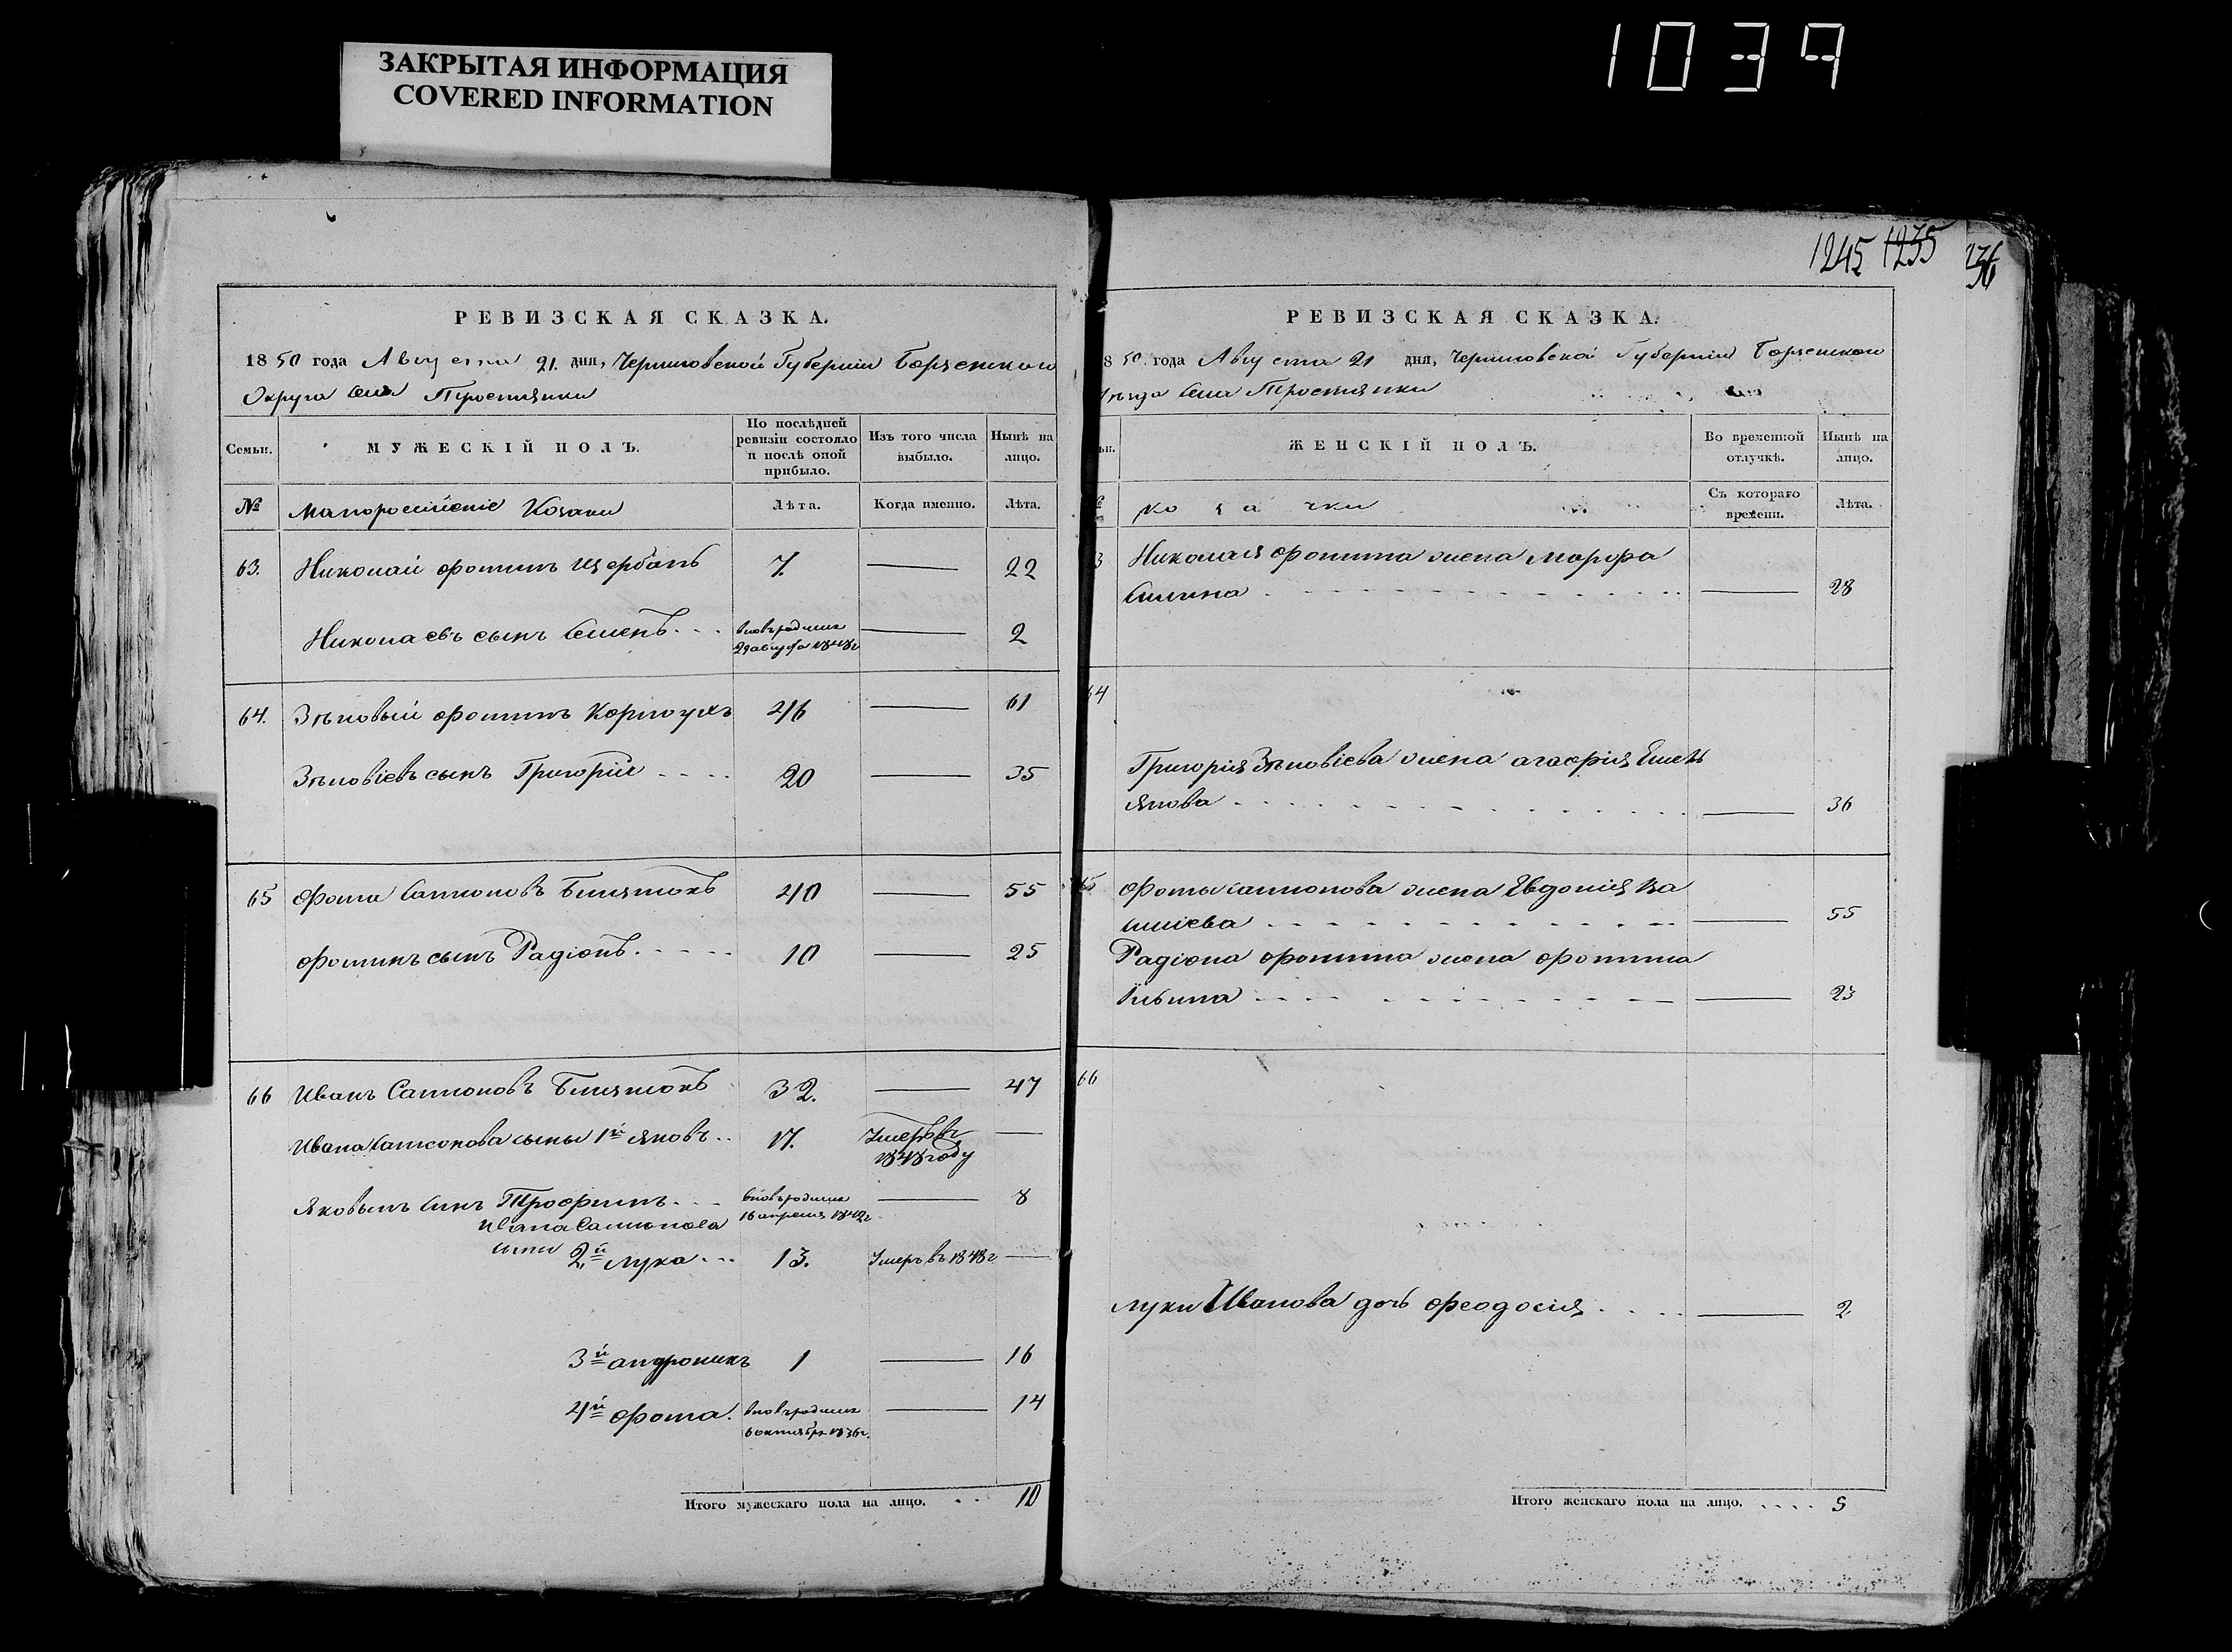 ЗАКРЫТАЯ ИНФОРМАЦИЯ
COVERED INFORMATION
1039
1245 1235
РЕВИЗСКАЯ СКАЗКА.
1850 года Августа 21. дня, Черниговской Губернiи Борзенского
Округа Села Тростянки
Семьи.
МУЖЕСКIЙ ПОЛЪ.
По послѣдней
ревизiи состояло
и послѣ оной
прибыло.
Изъ того числа
выбыло.
Нынѣ на
лицо.
№
Малоросiйскiе Козаки
Лѣта.
Когда именно.
Лѣта.
63. Николай Фоминъ Щербань 7. 22
Николаевъ сынъ Семенъ 2
вновьродился
29 августа 1848г
64. Зѣновый Фоминъ Корноухъ 46 61
Зѣновiевъ сынъ Григорiй 20 35
65 Фома Самсоновъ Близнюкъ 40 55
Фоминъ сынъ Радiонъ 10 25
66 Иванъ Самсоновъ Близнюкъ 32. 47
Ивана Самсонова сыны 1й Яковъ 17. Умеръ въ
1848 году
Яковымъ сынъ Трофимъ вновьродился 8
16 апреля 1842г
Ивана Самсонова
сыны 2й Лука 13. Умеръ въ 1848г
3й Андроникъ 1 16
4й Фома. вновьродился 14
6 октября 1836г.
Итого мужескаго пола на лицо. 10
РЕВИЗСКАЯ СКАЗКА.
850 года Августа 21 дня, Черниговской Губернiи Борзенского
Уезда Села Тростянки
ьи.
ЖЕНСКIЙ ПОЛЪ.
Во временной
отлучкѣ.
Нынѣ на
лицо.
№
козачки
Съ котораго
времени.
Лѣта.
3 Николая Фомина жена Марфа
Силина 28
64
Григорiя Зѣновiева жена Агафiя Емель
янова 36
65 Фомы Самсонова жена Евдокiя Ва
силiева 55
Радiона Фомина жена
Ильина 23
66
Луки Иванова дочь Феодосiя 2
Итого женскаго пола на лицо. 5